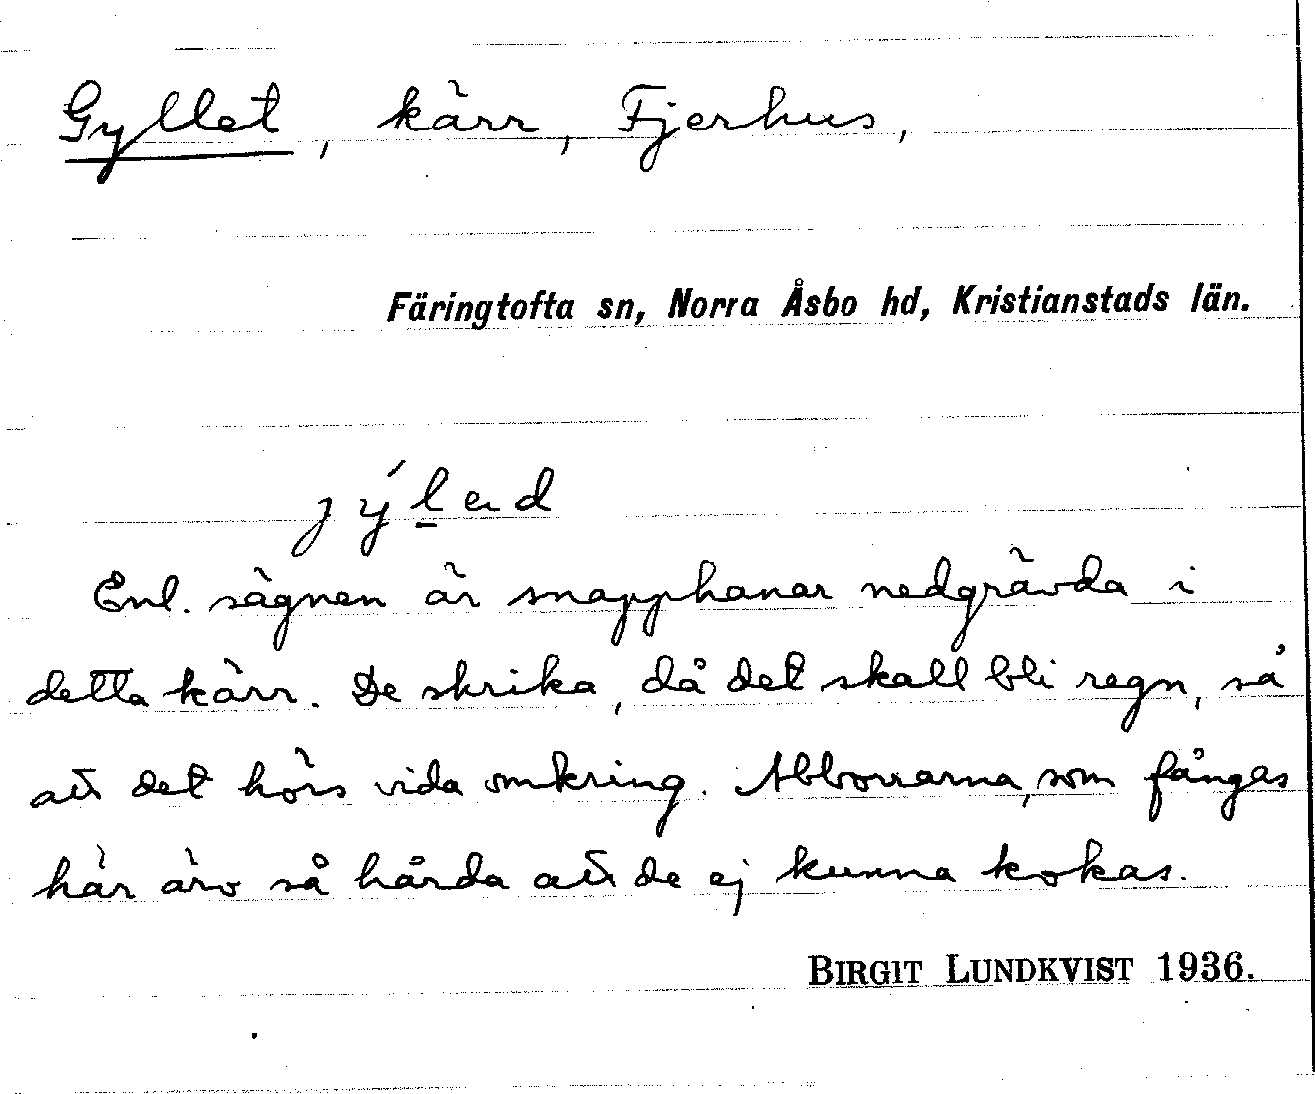 Gyllet, kärr, Fjerhus,
Färingtofta sn, Norra Åsbo hd, Kristianstads län.
Enl. sägnen är snapphanar nedgrävda i
detta kärr. De skrika, då det skall bli regn, så
att det hörs vida omkring. Abborrarna, som fångas
här äro så hårda att de ej kunna kokas.
BIRGIT LUNDKVIST 1936.